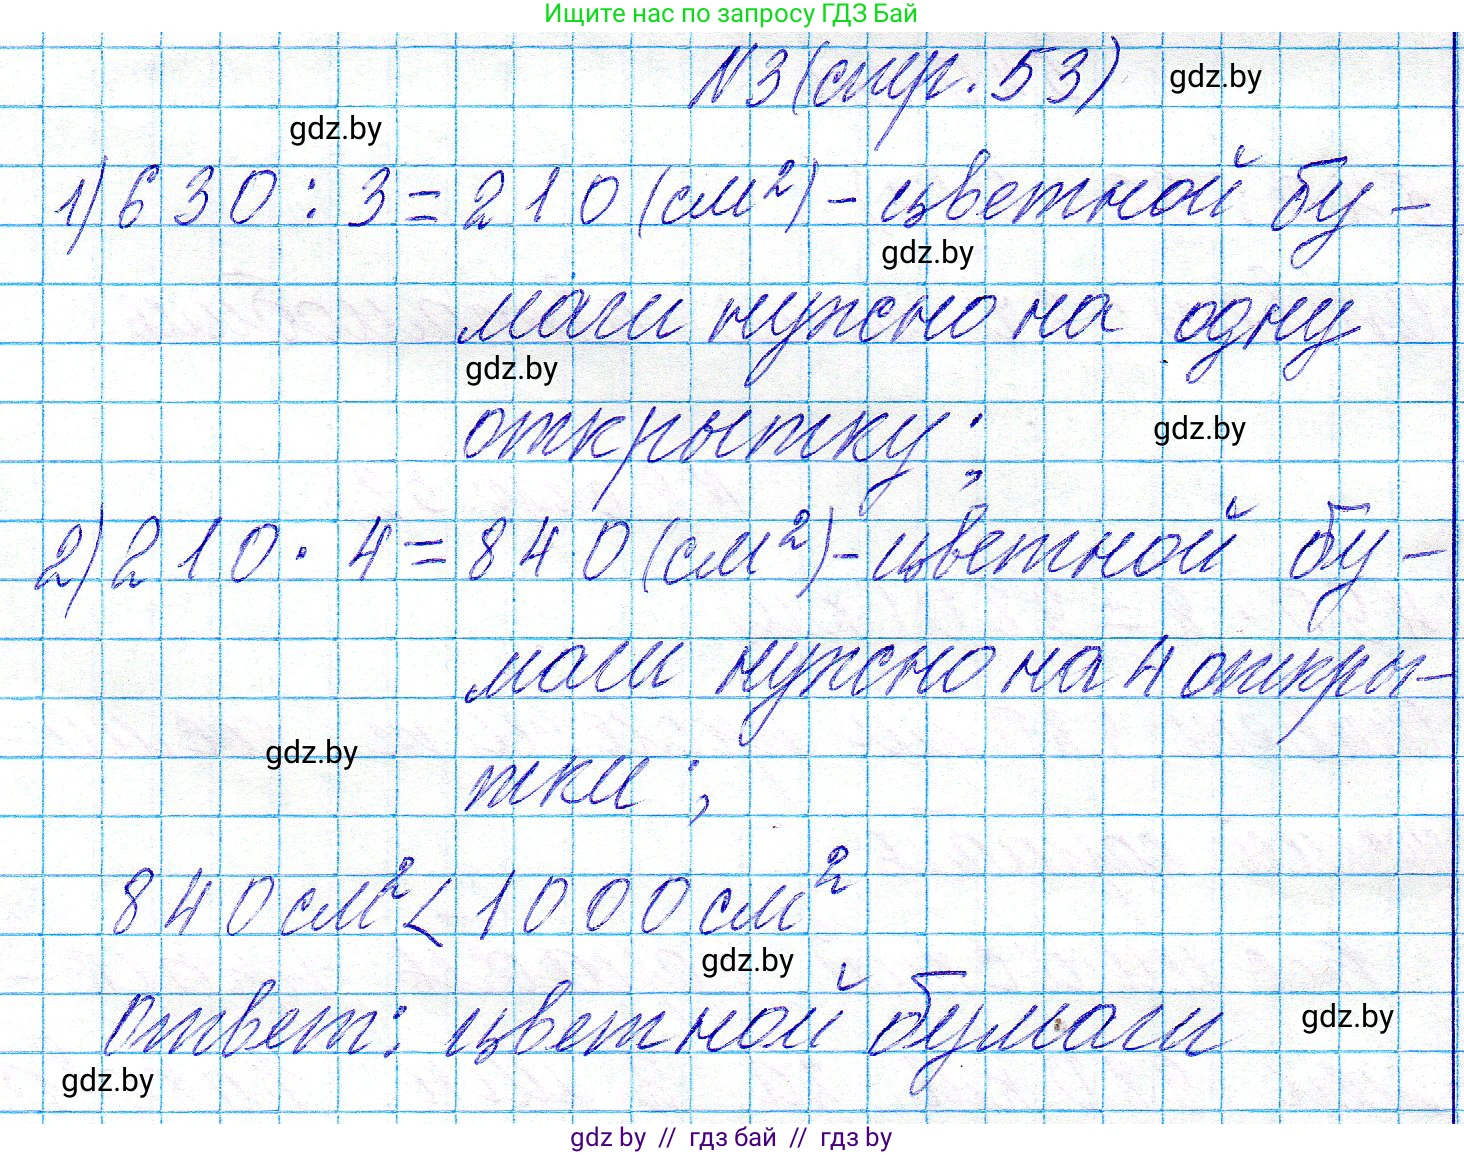 Ищите нас по запросу ГДЗ Бай
N3 (стр. 53)
gdz.by
gdz.by
1) 630 : 3 = 210 (см²) - цветной бу-
gdz.by
маги нужно на одну
gdz.by
открытку;
gdz.by
2) 210 · 4 = 840 (см²) - цветной бу-
маги нужно на 4 откры-
gdz.by
тки;
840 см² < 1000 см²
gdz.by
Ответ: цветной бумаги
gdz.by
gdz.by
gdz by // гдз бай // гдз by